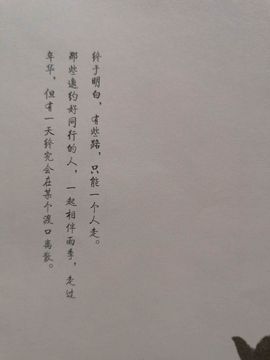 终于明白，有些路，只能一个人走。
那些邀约好同行的人，一起相伴雨季，走过
年华，但有一天终究会在某个渡口离散。